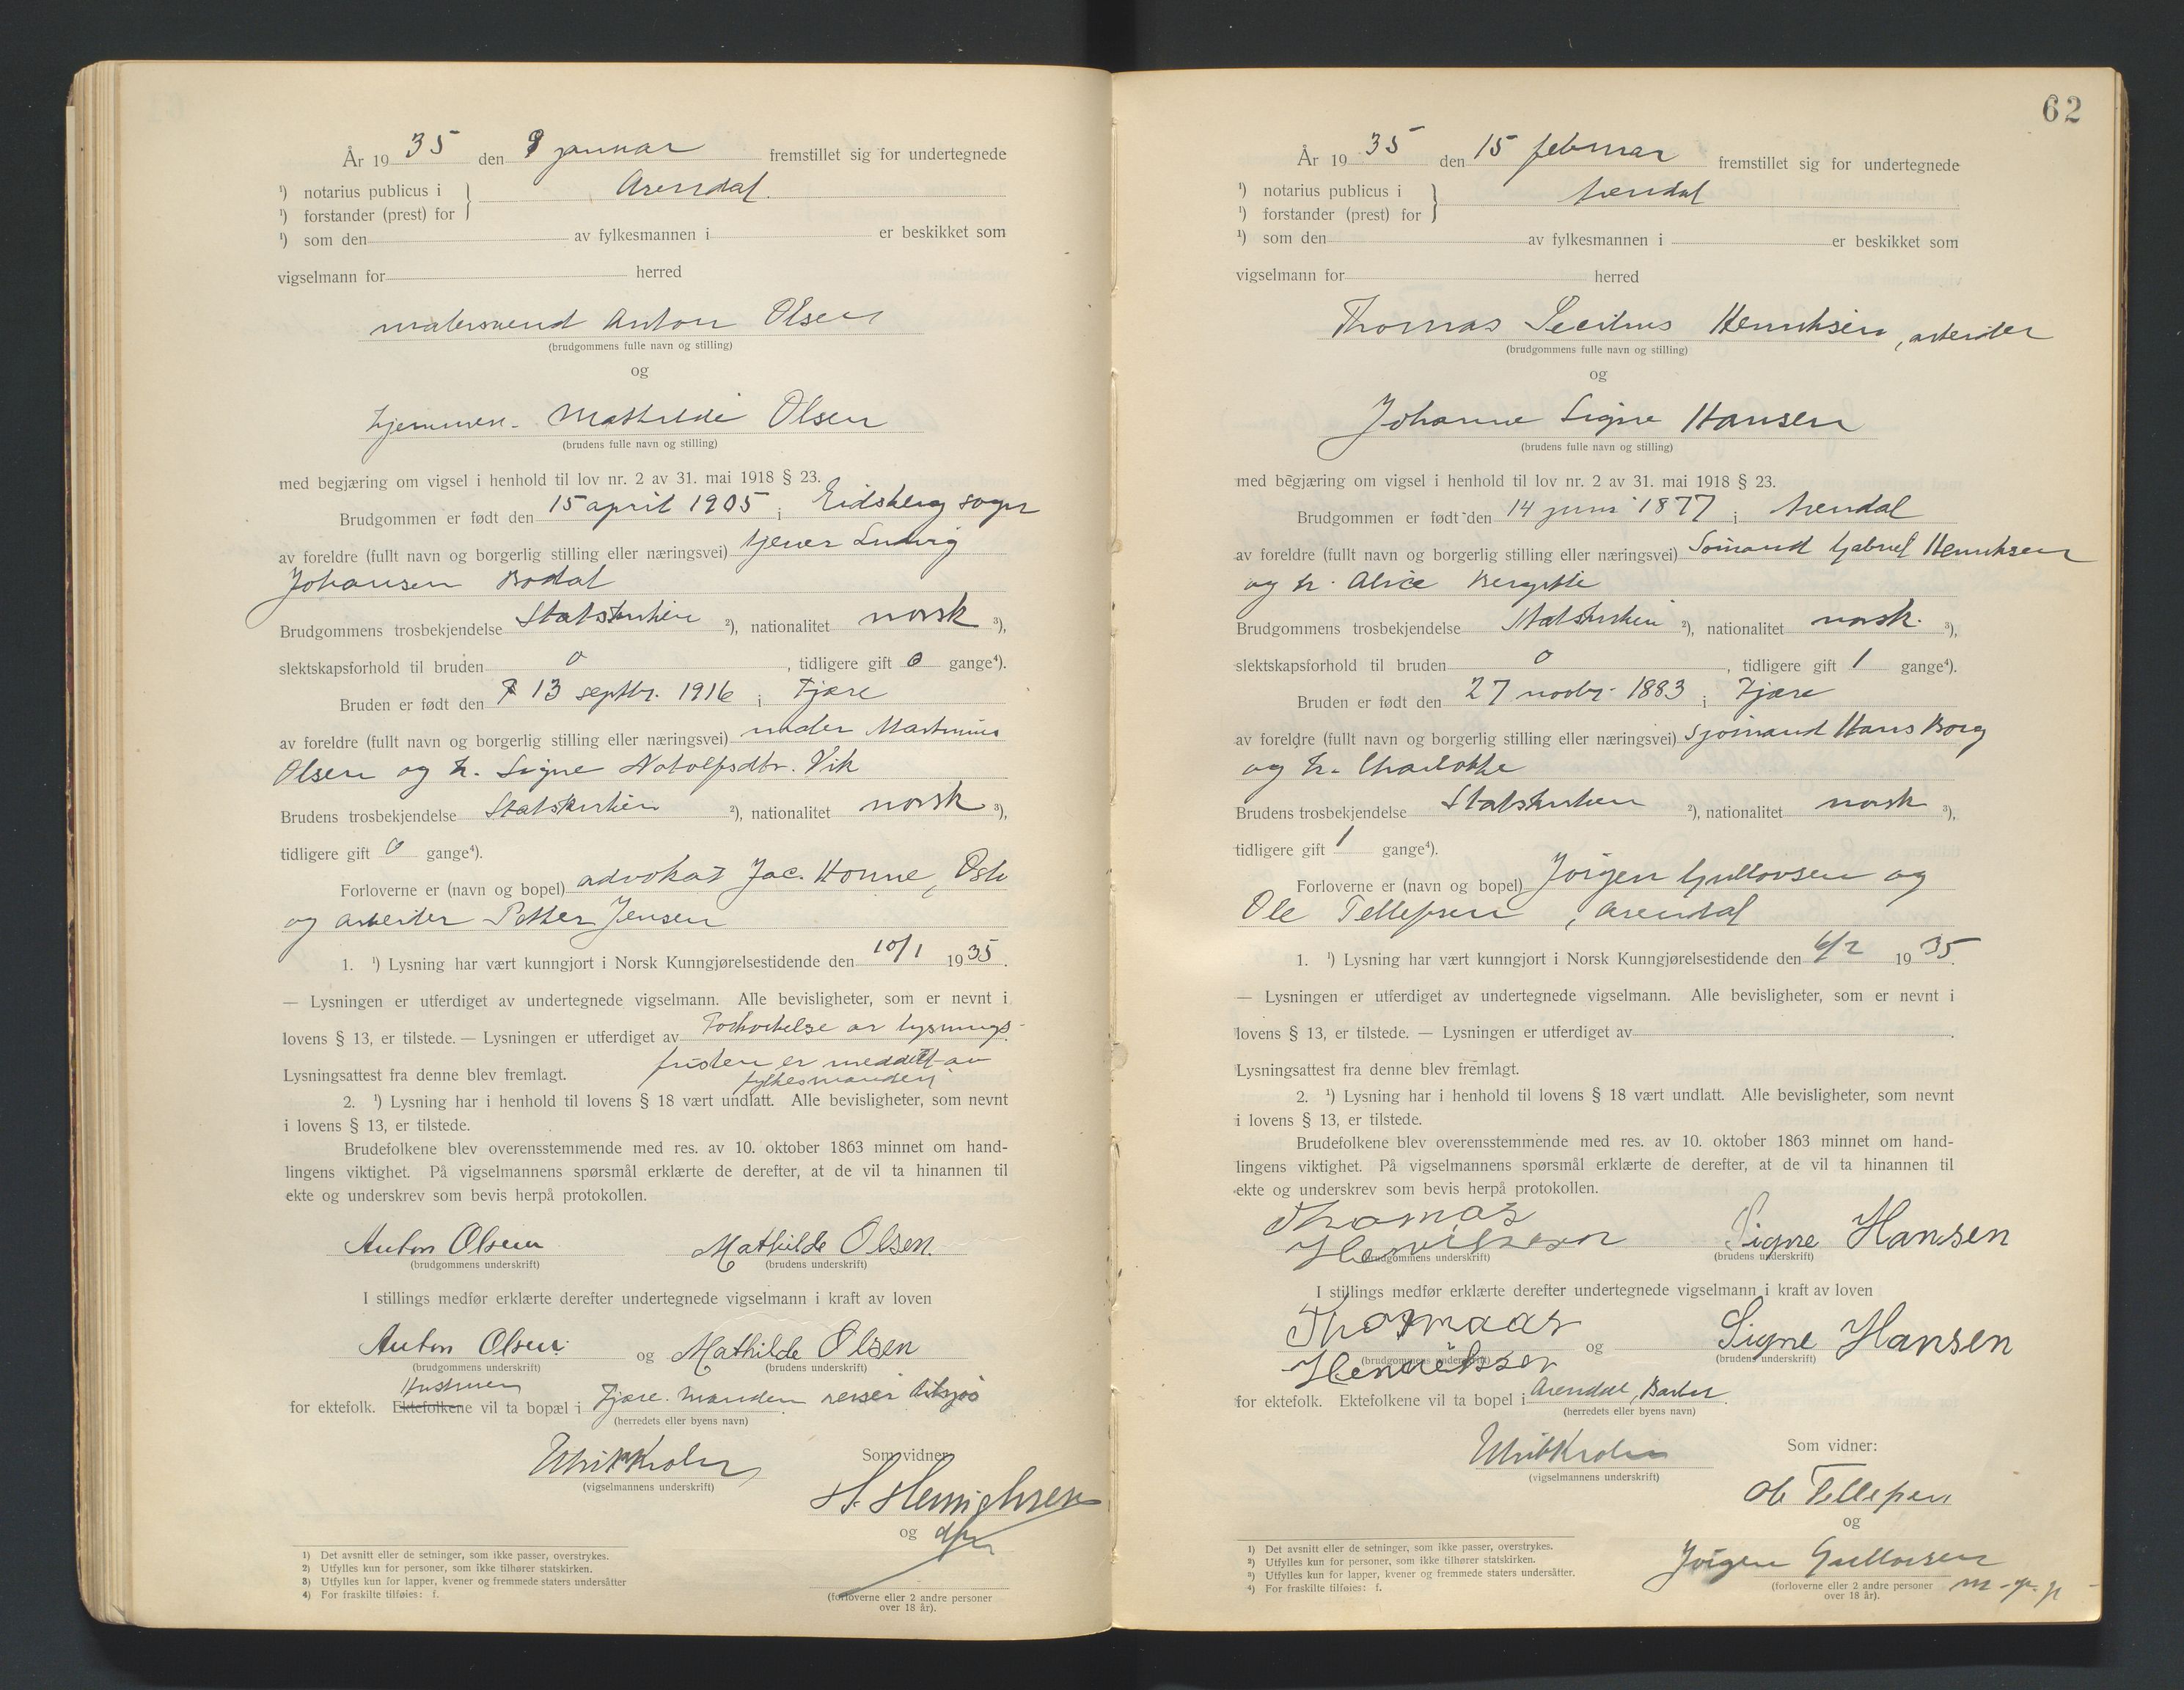 År 19 35 den 9 januar fremstillet sig for undertegnede
¹) notarius publicus i } Arendal.
¹) forstander (prest) for
¹) som den av fylkesmannen i er beskikket som
vigselmann for herred
matersvend Anton Olsen
(brudgommens fulle navn og stilling)
og
hjemmev. Mathilde Olsen
(brudens fulle navn og stilling)
med begjæring om vigsel i henhold til lov nr. 2 av 31. mai 1918 § 23.
Brudgommen er født den 15 april 1905 i Eidsberg sogn
av foreldre (fullt navn og borgerlig stilling eller næringsvei) tjener Ludvig
Johansen Bodal
Brudgommens trosbekjendelse Statskirken ²), nationalitet norsk ³),
slektskapsforhold til bruden 0 , tidligere gift 0 gange⁴).
Bruden er født den 13 septbr. 1916 i Fjære
av foreldre (fullt navn og borgerlig stilling eller næringsvei) Martinius
Olsen og h. Signe Notolfsdtr. Vik
Brudens trosbekjendelse Statskirken ²), nationalitet norsk ³),
tidligere gift 0 gange⁴).
Forloverne er (navn og bopel) advokat Jac. Honne, Oslo
og arbeider Petter Jensen
1. ¹) Lysning har vært kunngjort i Norsk Kunngjørelsestidende den 10/1 1935.
— Lysningen er utferdiget av undertegnede vigselmann. Alle bevisligheter, som er nevnt i
lovens § 13, er tilstede. — Lysningen er utferdiget av Forkortelse av lysnings-
fristen er meddelt av
Lysningsattest fra denne blev fremlagt. fylkesmanden
2. ¹) Lysning har i henhold til lovens § 18 vært undlatt. Alle bevisligheter, som nevnt
i lovens § 13, er tilstede.
Brudefolkene blev overensstemmende med res. av 10. oktober 1863 minnet om hand-
lingens viktighet. På vigselmannens spørsmål erklærte de derefter, at de vil ta hinannen til
ekte og underskrev som bevis herpå protokollen.
Anton Olsen Mathilde Olsen.
(brudgommens underskrift) (brudens underskrift)
I stillings medfør erklærte derefter undertegnede vigselmann i kraft av loven
Anton Olsen. og Mathilde Olsen
(brudgommens underskrift) (brudens underskrift)
Hustruen
for ektefolk. Ektefolkene vil ta bopæl i Fjære. Manden reiser tilsjøs
(herredets eller byens navn)
Som vidner
(vigselmannens underskrift)
H. Henrichsen
og
(forloverne eller 2 andre personer
over 18 år).
1) Det avsnitt eller de setninger, som ikke passer, overstrykes.
2) Utfylles kun for personer, som ikke tilhører statskirken.
3) Utfylles kun for lapper, kvener og fremmede staters undersåtter
4) For fraskilte tilføies: f.
62
År 19 35 den 15 februar fremstillet sig for undertegnede
¹) notarius publicus i } Arendal
¹) forstander (prest) for
¹) som den av fylkesmannen i er beskikket som
vigselmann for herred
Thomas Secilius Henriksen, arbeider
(brudgommens fulle navn og stilling)
og
Johanne Signe Hansen
(brudens fulle navn og stilling)
med begjæring om vigsel i henhold til lov nr. 2 av 31. mai 1918 § 23.
Brudgommen er født den 14 juni 1877 i Arendal
av foreldre (fullt navn og borgerlig stilling eller næringsvei) Sømand Gabriel Henriksen
og h. Alice Bergitte
Brudgommens trosbekjendelse Statskirken ²), nationalitet norsk. ³),
slektskapsforhold til bruden 0 , tidligere gift 1 gange⁴).
Bruden er født den 27 novbr. 1883 i Fjære
av foreldre (fullt navn og borgerlig stilling eller næringsvei) Sjømand Hans Borg
og h. Charlotte
Brudens trosbekjendelse Statskirken ²), nationalitet norsk ³),
tidligere gift 1 gange⁴).
Forloverne er (navn og bopel) Jørgen Gullovsen og
Ole Tellefsen, Arendal
1. ¹) Lysning har vært kunngjort i Norsk Kunngjørelsestidende den 6/2 1935.
— Lysningen er utferdiget av undertegnede vigselmann. Alle bevisligheter, som er nevnt i
lovens § 13, er tilstede. — Lysningen er utferdiget av
Lysningsattest fra denne blev fremlagt.
2. ¹) Lysning har i henhold til lovens § 18 vært undlatt. Alle bevisligheter, som nevnt
i lovens § 13, er tilstede.
Brudefolkene blev overensstemmende med res. av 10. oktober 1863 minnet om hand-
lingens viktighet. På vigselmannens spørsmål erklærte de derefter, at de vil ta hinannen til
ekte og underskrev som bevis herpå protokollen.
Thomas
Henriksen Signe Hansen
(brudgommens underskrift) (brudens underskrift)
I stillings medfør erklærte derefter undertegnede vigselmann i kraft av loven
Thomaas
Henriksen og Signe Hansen
(brudgommens underskrift) (brudens underskrift)
for ektefolk. Ektefolkene vil ta bopel i Arendal, Barbu.
(herredets eller byens navn)
Som vidner:
(vigselmannens underskrift)
Ole Tellefsen
og
Jørgen Gullovsen
m. p. p
(forloverne eller 2 andre personer
over 18 år).
1) Det avsnitt eller de setninger, som ikke passer, overstrykes.
2) Utfylles kun for personer, som ikke tilhører statskirken.
3) Utfylles kun for lapper, kvener og fremmede staters undersåtter.
4) For fraskilte tilføies: f.